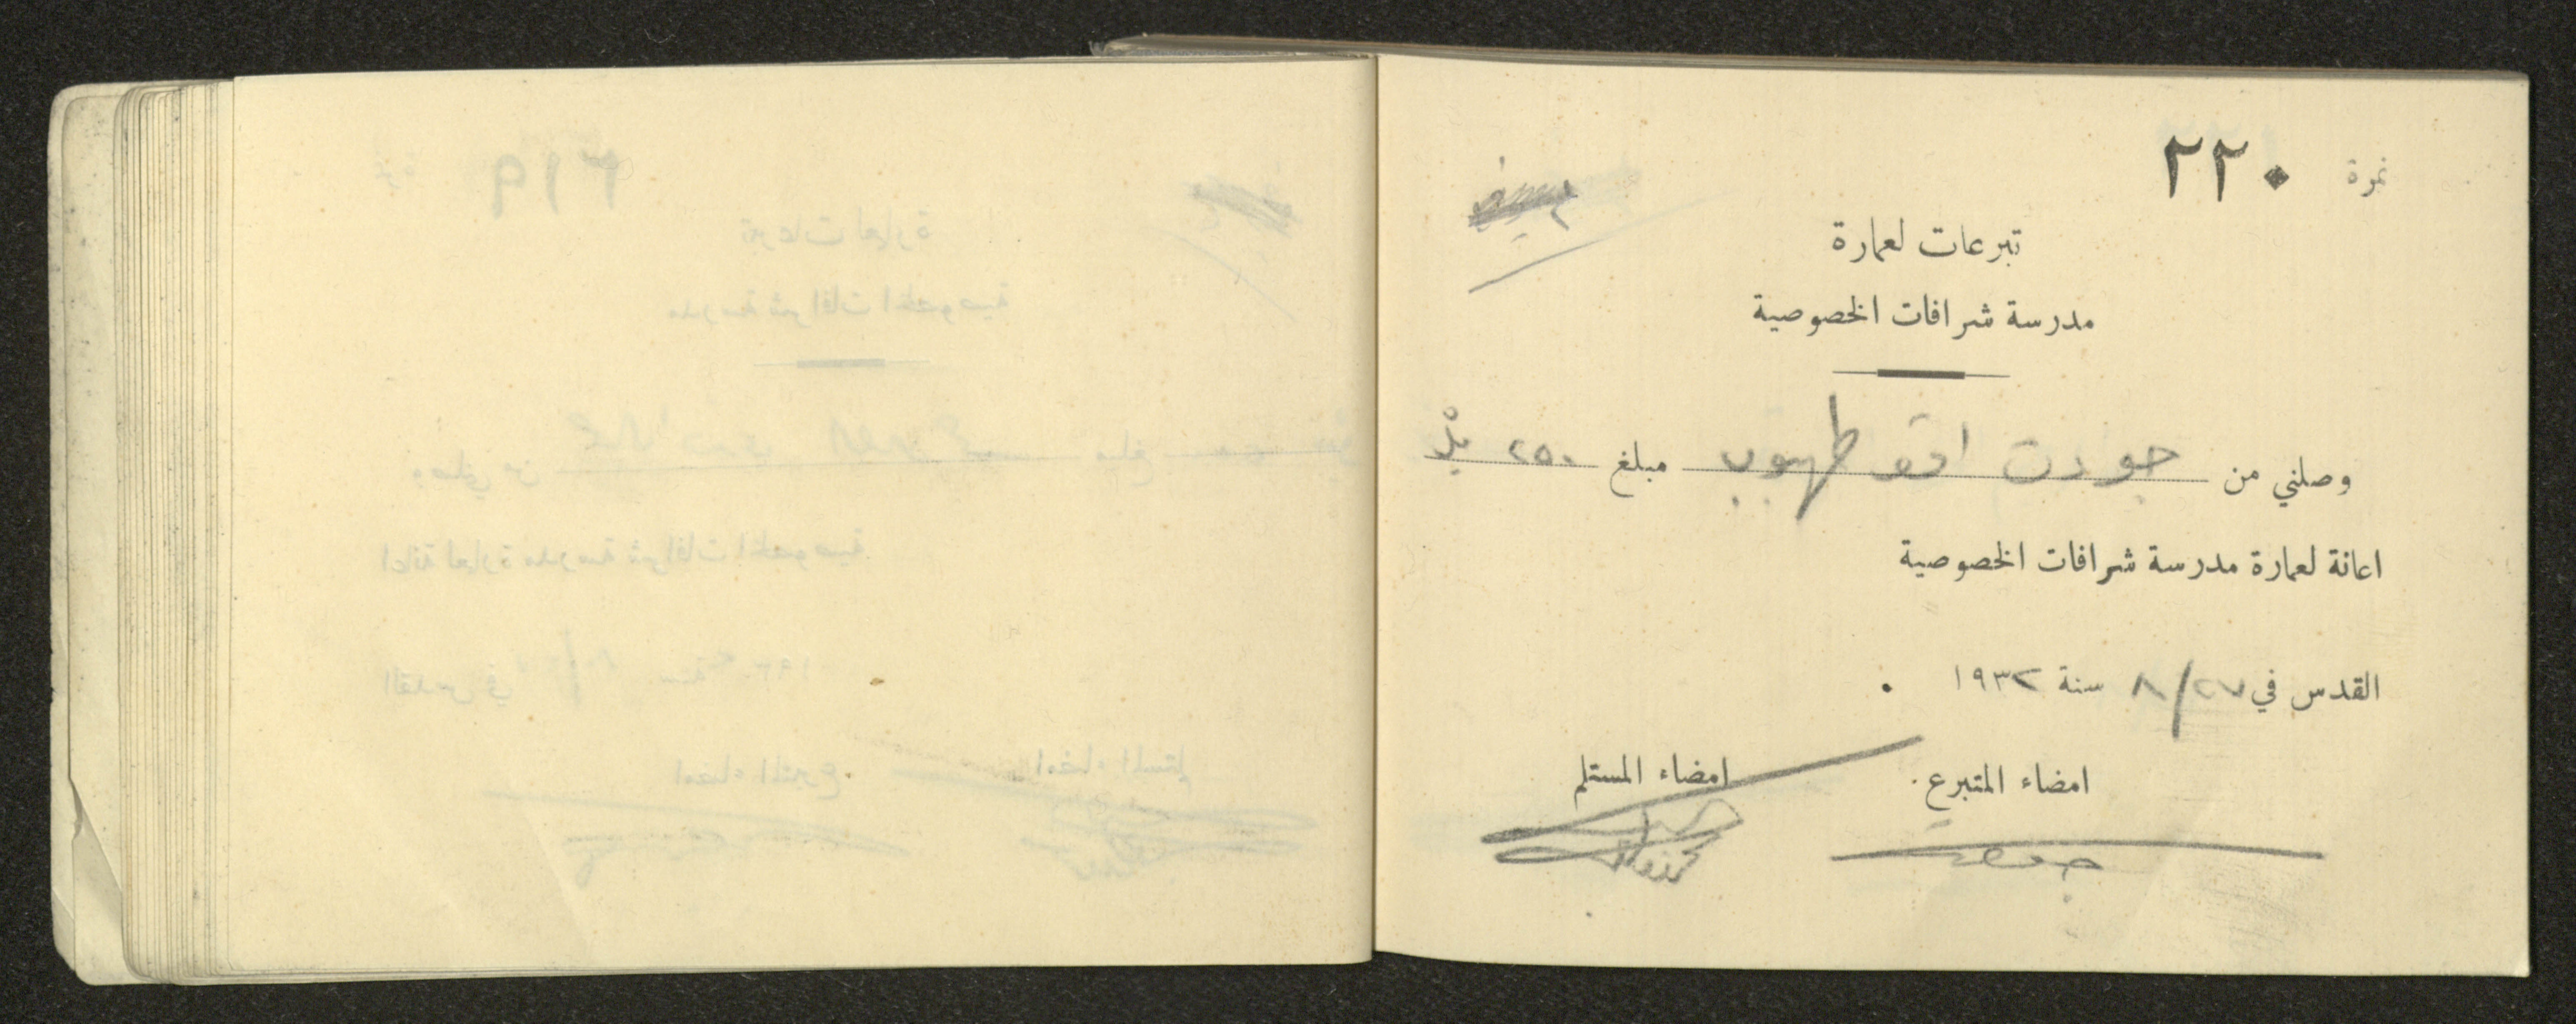 نمرة ٢٢٠
تبرعات لعمارة
مدرسة شرافات الخصوصية
وصلني من جودت طهبوب مبلغ ٢٥٠
اعانة لعمارة مدرسة شرافات الخصوصية
القدس في ٢٧/٨ سنة ١٩٣٢
امضاء المتبرع. امضاء المستلم